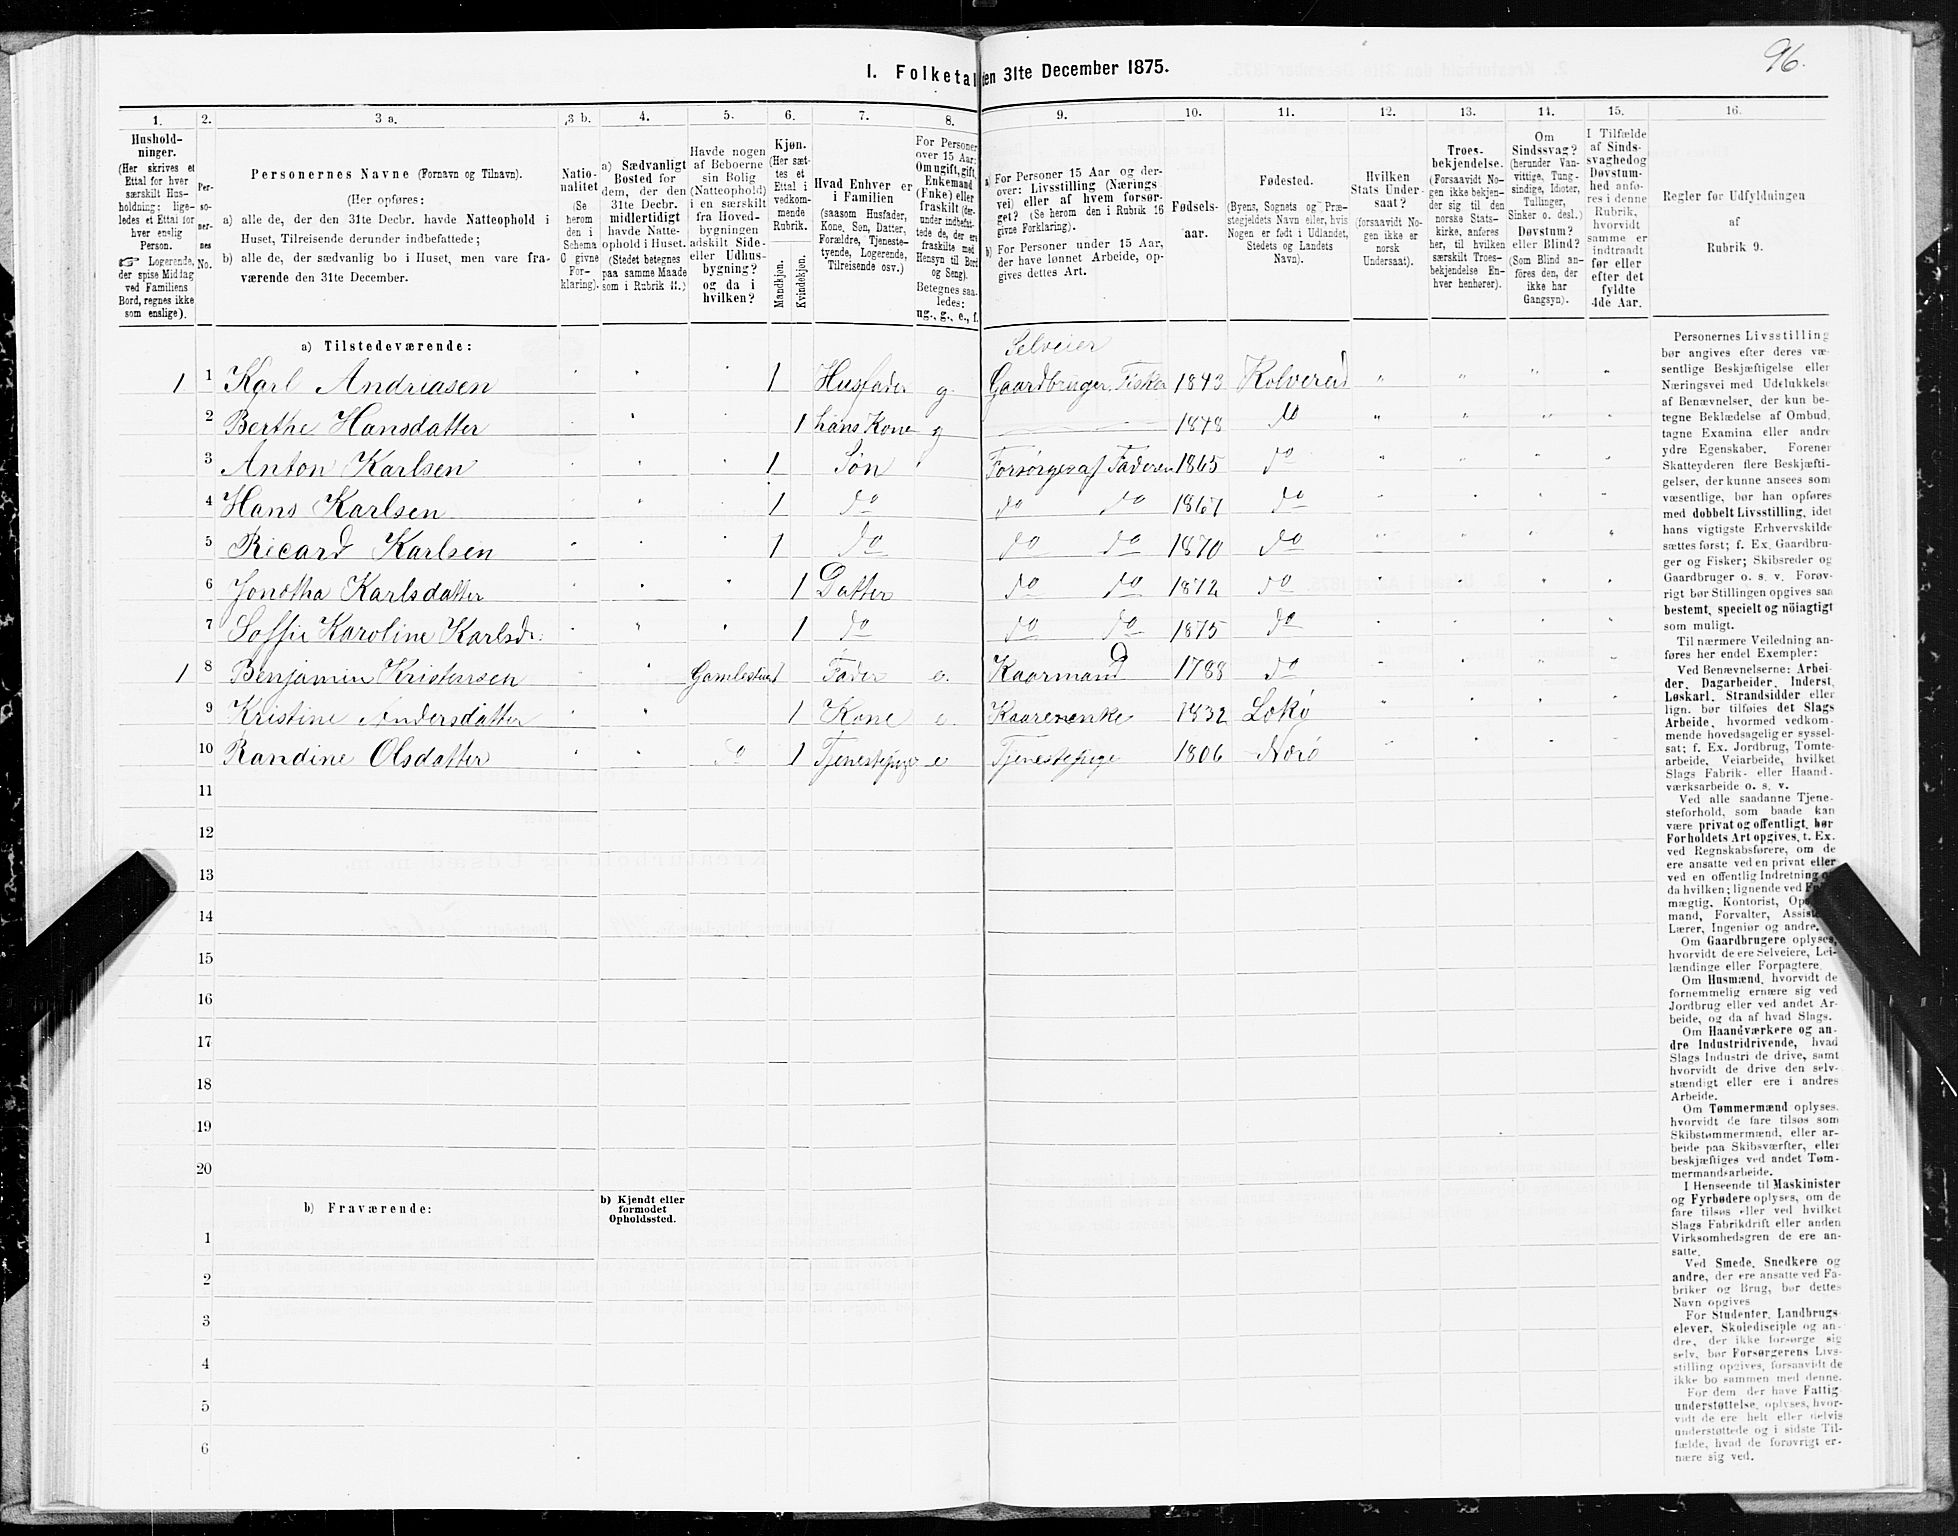 96.
I. Folketal den 31te December 1875.
1. 2. 3 a. 3 b. 4. 5. 6. 7. 8. 9. 10. 11. 12. 13. 14. 15. 16.
Hushold-
ninger.
(Her skrives et
Ettal for hver
særskilt Hus-
holdning; lige-
ledes et Ettal for
hver enslig
Person.
☞ Logerende,
der spise Middag
ved Familiens
Bord, regnes ikke
som enslige).
Per-
so-
ner-
nes
No.
Personernes Navne (Fornavn og Tilnavn).
(Her opføres:
a) alle de, der den 31te Decbr. havde Natteophold i
Huset, Tilreisende derunder indbefattede;
b) alle de, der sædvanlig bo i Huset, men vare fra-
værende den 31te December.
Natio-
nalitet
(Se
herom
den i
Schema
C givne
For-
klaring).
a) Sædvanligt
Bosted for
dem, der den
31te Decbr.
midlertidigt
havde Natte-
ophold i Huset.
(Stedet betegnes
paa samme Maade
som i Rubrik 11.)
Havde nogen
af Beboerne
sin Bolig
(Natteophold)
i en særskilt
fra Hoved-
bygningen
adskilt Side-
eller Udhus-
bygning?
og da i
hvilken?
Kjøn.
(Her sæt-
tes et
Ettal i
vedkom-
mende
Rubrik.
Mandkjøn.
Kvindekjøn.
Hvad Enhver er
i Familien
(saasom Husfader,
Kone, Søn, Datter,
Forældre, Tjeneste-
tyende, Logerende,
Tilreisende osv.)
For Personer
over 15 Aar:
Om ugift, gift,
Enkemand
(Enke) eller
fraskilt (der-
under indbefat-
tede de, der ere
fraskilte med
Hensyn til Bord
og Seng).
Betegnes saa-
ledes:
ug., g., e., f.
a) For Personer 15 Aar og der-
over: Livsstilling (Nærings
vei) eller af hvem forsør-
get? (Se herom den i Rubrik 16
givne Forklaring).
b) For Personer under 15 Aar,
der have lønnet Arbeide, op-
gives dettes Art.
Fødsels-
aar.
Fødested.
(Byens, Sognets og Præ-
stegjeldets Navn eller, hvis
Nogen er født i Udlandet,
Stedets og Landets
Navn).
Hvilken
Stats Under-
saat?
(forsaavidt No-
gen ikke er
norsk
Undersaat).
Troes-
bekjendelse.
(Forsaavidt No-
gen ikke bekjen-
der sig til den
norske Stats-
kirke, anføres
her, til hvilken
særskilt Troes-
bekjendelse En-
hver henhører).
Om
Sindssvag?
(herunder Van-
vittige, Tung-
sindige, Idioter,
Tullinger,
Sinker o. desl.)
Døvstum?
eller Blind?
(Som Blind an-
føres den, der
ikke har
Gangsyn).
I Tilfælde
af Sinds-
svaghed og
Døvstum-
hed anfø-
res i denne
Rubrik,
hvorvidt
samme er
indtraadt
før eller
efter det
fyldte
4de Aar.
Regler for Udfyldningen
af
Rubrik 9.
a) Tilstedeværende:
Selveier
1 1 Karl Andriasen 1 Husfader g. Gaardbruger, Fisker 1843 Kolvereid
2 Berthe Hansdatter 1 hans Kone g 1848 do
3 Anton Karlsen 1 Søn Forsørges af Faderen 1865 do
4 Hans Karlsen 1 do do do 1867 do
5 Ricard Karlsen 1 do do do 1870 do
6 Jonetha Karlsdatter 1 Datter do do 1872 do
7 Soffie Karoline Karlsd: 1 do do do 1875 do
1 8 Benjamin Kristensen 1 Fader e. Kaarmand 1788 do
9 Kristine Andersdatter 1 Kone e. Kaarenke 1832 Lekø
10 Randine Olsdatter do 1 Tjenestepige e Tjenestepige 1806 Nærø
11
12
13
14
15
16
17
18
19
20
b) Fraværende:
b) Kjendt eller
formodet
Opholdssted.
1
2
3
4
5
6
Personernes Livsstilling
bør angives efter deres væ-
sentlige Beskjæftigelse eller
Næringsvei med Udelukkelse
af Benævnelser, der kun be-
tegne Beklædelse af Ombud,
tagne Examina eller andre
ydre Egenskaber. Forener
Skatteyderen flere Beskjæfti-
gelser, der kunne ansees som
væsentlige, bør han opføres
med dobbelt Livsstilling, idet
hans vigtigste Erhvervskilde
sættes først; f. Ex. Gaardbru-
ger og Fisker; Skibsreder og
Gaardbruger o. s. v. Forøv-
rigt bør Stillingen opgives saa
bestemt, specielt og nöiagtigt
som muligt.
Til nærmere Veiledning an-
føres her endel Exempler:
Ved Benævnelserne: Arbei-
der, Dagarbeider, Inderst,
Løskarl, Strandsidder eller
lign. bør tilføies det Slags
Arbeide, hvormed vedkom-
mende hovedsagelig er syssel-
sat; f. Ex. Jordbrug, Tomte-
arbeide, Veiarbeide, hvilket
Slags Fabrik- eller Haand-
værksarbeide o. s. v.
Ved alle saadanne Tjene-
steforhold, som baade kan
være privat og offentligt, bør
Forholdets Art opgives, t. Ex.
ved Regnskabsførere, om de
ere ansatte ved en privat eller
ved en offentlig Indretning og
da hvilken; lignende ved Fuld-
mægtig, Kontorist, Opsyns-
mand, Forvalter, Assistent,
Lærer, Ingeniør og andre.
Om Gaardbrugere oplyses,
hvorvidt de ere Selveiere, Lei-
lændinge eller Forpagtere.
Om Husmænd, hvorvidt de
fornemmelig ernære sig ved
Jordbrug eller ved andet Ar-
beide, og da af hvad Slags.
Om Haandværkere og an-
dre Industridrivende, hvad
Slags Industri de drive, samt
hvorvidt de drive den selv-
stændigt eller ere i andres
Arbeide.
Om Tømmermænd oplyses,
hvorvidt de fare tilsøs som
Skibstømmermænd, eller ar-
beide paa Skibsværfter, eller
beskjæftiges ved andet Tøm-
mermandsarbeide.
I Henseende til Maskinister
og Fyrbødere oplyses, om de
fare tilsøs eller ved hvilket
Slags Fabrikdrift eller anden
Virksomhedsgren de ere an-
satte.
Ved Smede, Snedkere og
andre, der ere ansatte ved Fa-
briker og Brug, bør dettes
Navn opgives
For Studenter, Landbrugs-
elever, Skoledisciple og an-
dre, der ikke forsørge sig
selv, bør Forsørgerens Livs-
stilling opgives, forsaavidt de
ikke bo sammen med denne.
For dem der have Fattig-
understøttelse, oplyses, hvor-
vidt de ere helt eller delvis
understøttede og i sidste Til-
fælde, hvad de forøvrigt er-
nære sig ved.